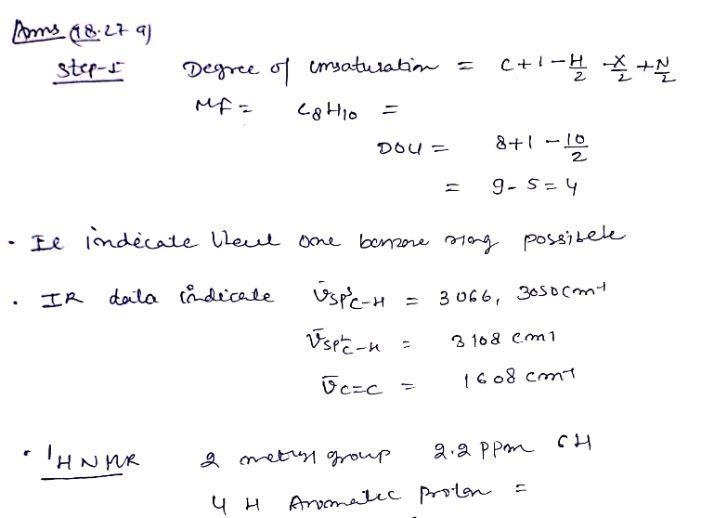 Ams (18.27 a)
Step-I Degree of unsaturation = C+1-H/2 -X/2 +N/2
MF = C8H10 =
DOU = 8+1 - 10/2
= 9-5=4
• It indicate that one benzene ring possible
• IR data indicate ν̄sp³C-H = 3066, 3050 cm-1
ν̄sp²C-H = 3108 cm-1
ν̄C=C = 1608 cm-1
• ¹H NMR 2 methyl group 2.2 ppm 6H
4H Aromatic proton =